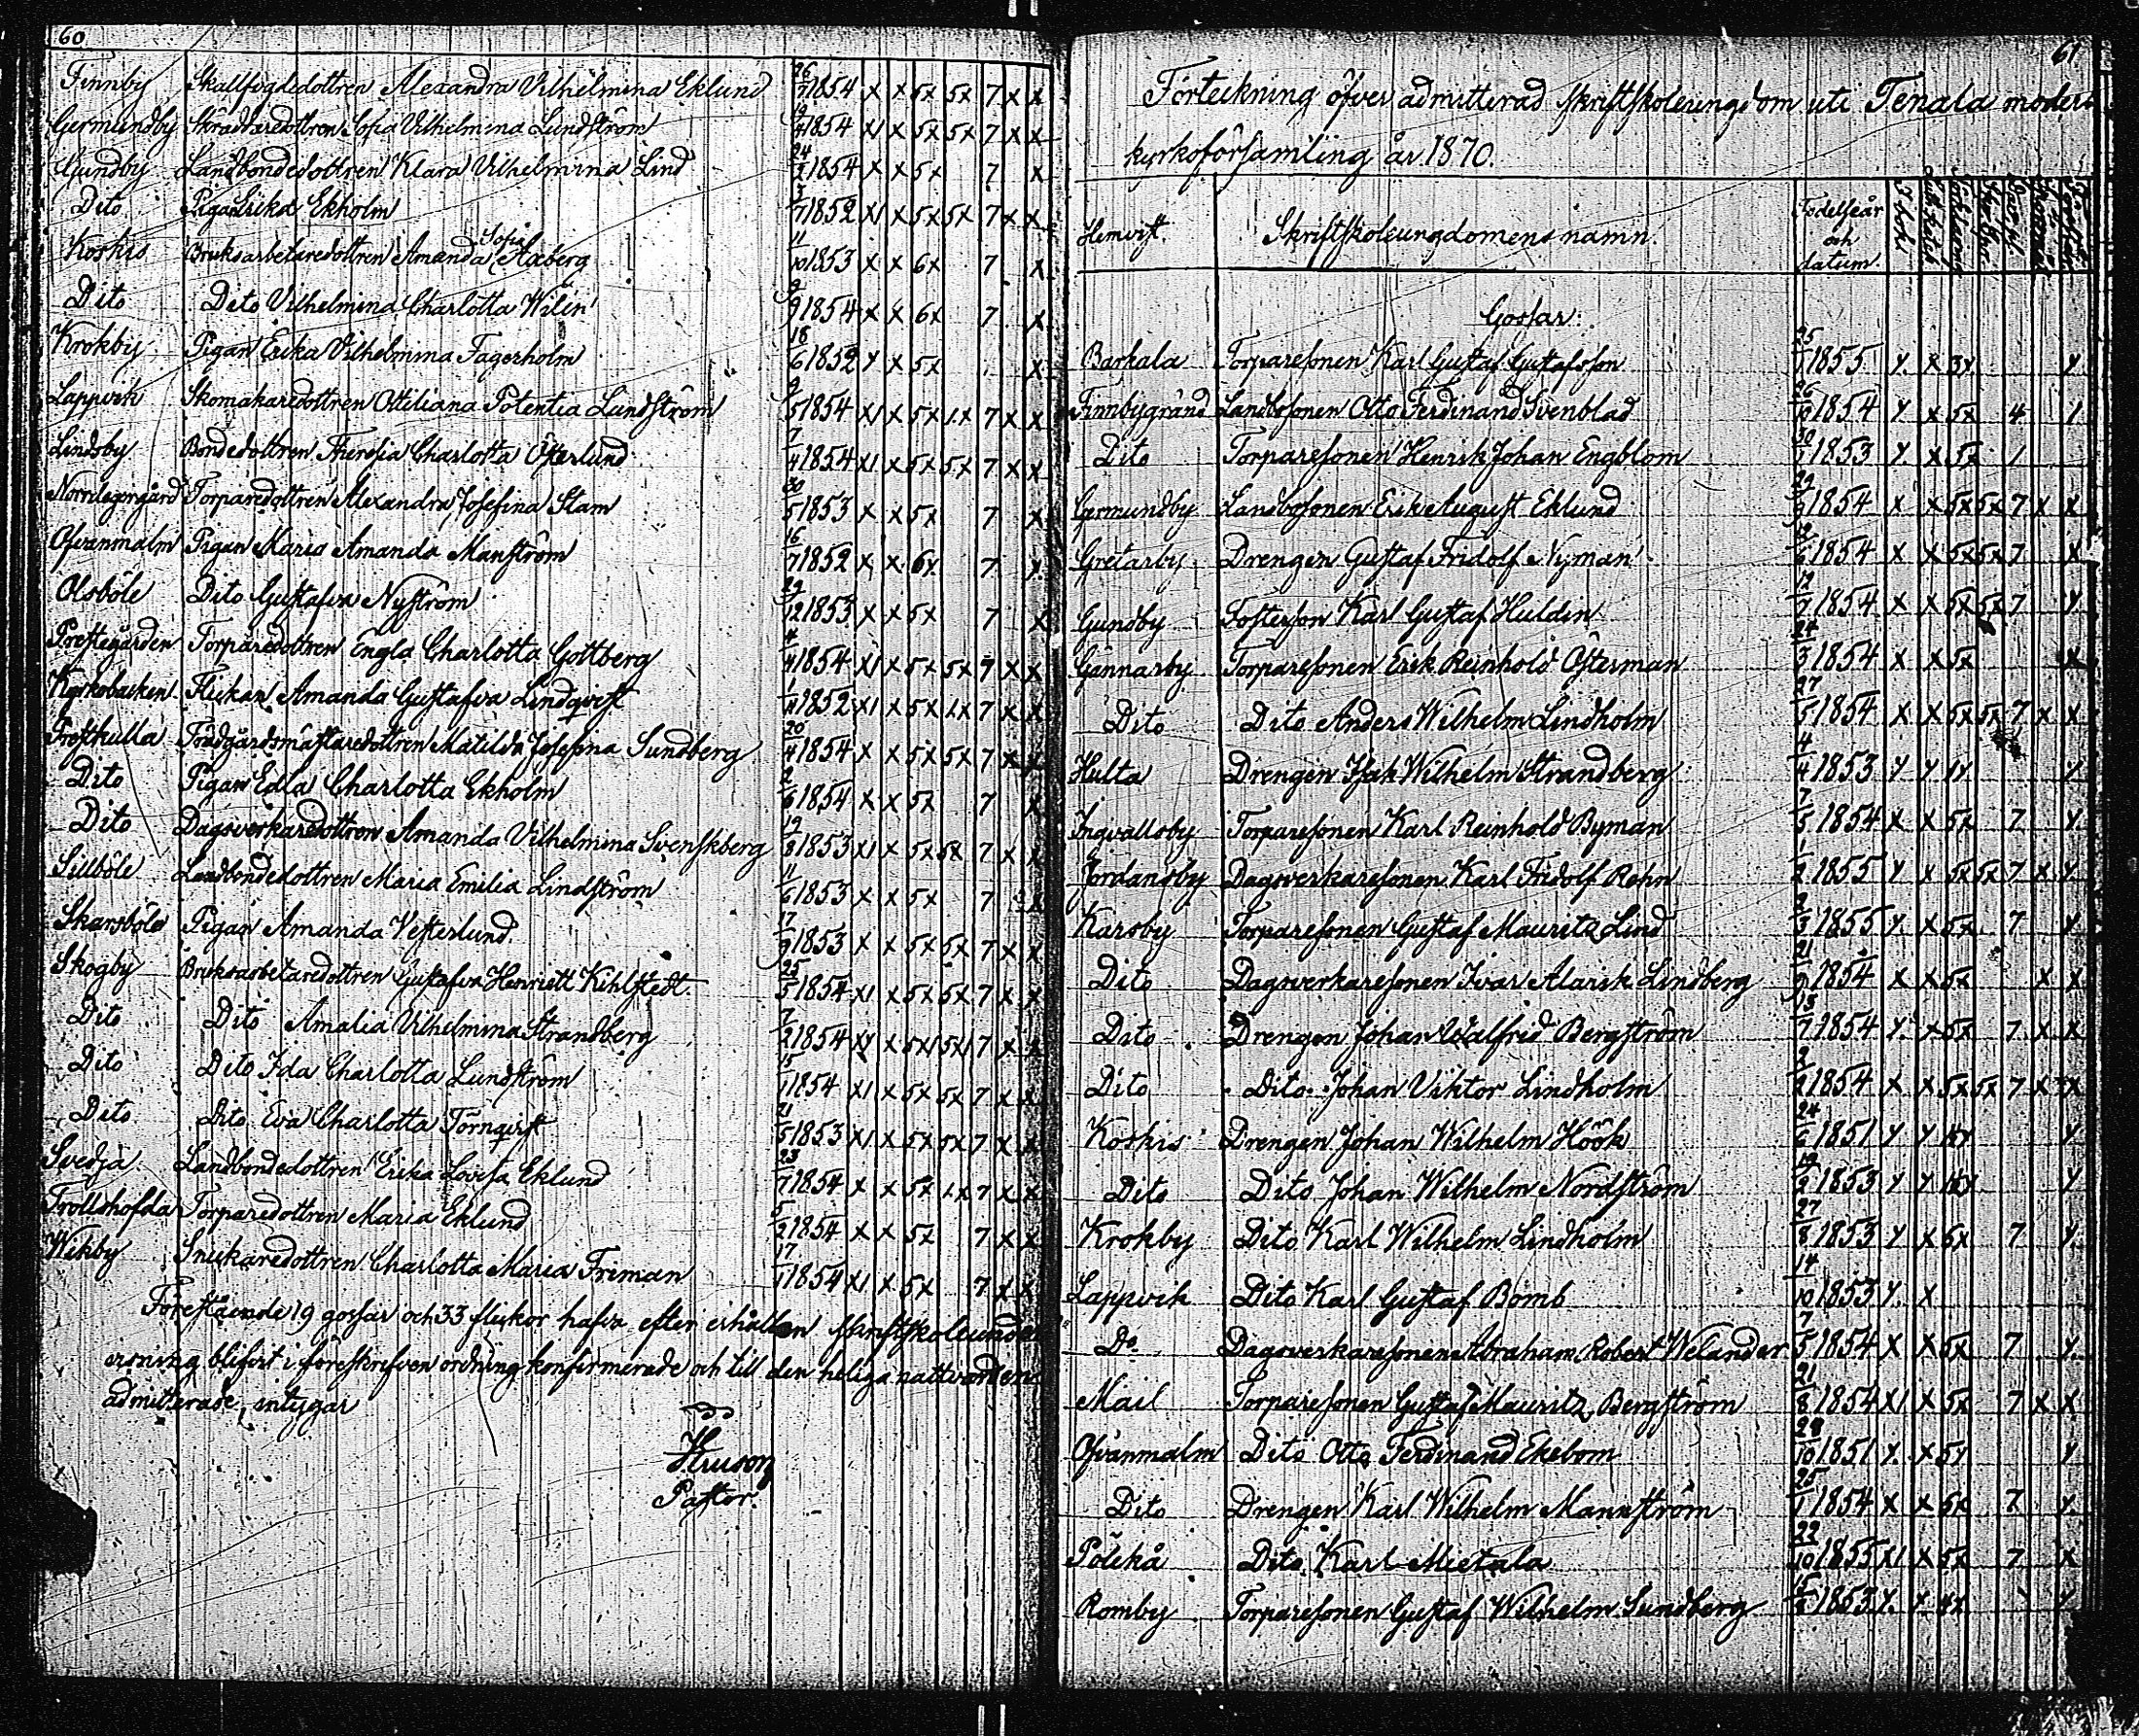 60
Finnby Skallfogdedottren Alexandra Vilhelmina Eklund 26/7 1854 x x 5x 5x 7 x x
Germundby Skräddaredottren Sofia Vilhelmina Lundström 19/4 1854 x1 x 5x 5x 7 x x
Gundby Landbondedottren Klara Vilhelmina Lind 24/2 1854 x x 5x 7 x
Dito Pigan Erika Ekholm 3/7 1852 x1 x 5x 5x 7 x x
Koskis Bruksarbetaredottren Amanda Sofia Axberg 11/10 1853 x x 6x 7 x
Dito Dito Vilhelmina Charlotta Wilén 9/9 1854 x x 6x 7 x
Krokby Pigan Erika Vilhelmina Fagerholm 18/6 1852 x x 5x x
Lappvik Skomakaredottren Ottiliana Potentia Lundström 9/5 1854 x1 x 5x 1x 7 x x
Lindsby Bondedottren Theresia Charlotta Österlund 7/4 1854 x1 x 5x 5x 7 x x
Norrlagergård Torparedottren Alexandra Josefina Stam 30/5 1853 x x 5x 7 x
Ofvanmalm Pigan Maria Amanda Manström 16/7 1852 x x 6x 7 x
Olsböle Dito Gustafva Nyström 29/12 1853 x x 5x 7 x
Prestegården Torparedottren Engla Charlotta Gottberg 4/4 1854 x1 x 5x 5x 7 x x
Kyrkobacken Flickan Amanda Gustafva Lindqvist 1/11 1852 x1 x 5x 1x 7 x x
Prestkulla Trädgårdsmästaredottren Matilda Josefina Sundberg 20/4 1854 x x 5x 5x 7 x x
Dito Pigan Edla Charlotta Ekholm 2/6 1854 x x 5x 7 x
Dito Dagsverkaredottren Amanda Vilhelmina Svenskberg 19/8 1853 x1 x 5x 5x 7 x x
Sillböle Landbondedottren Maria Emilia Lindström 11/6 1853 x x 5x 7 x
Skansböle Pigan Amanda Vesterlund 17/9 1853 x x 5x 5x 7 x x
Skogby Bruksarbetaredottren Gustafva Henriett Kihlstedt 25/5 1854 x1 x 5x 5x 7 x x
Dito Dito Amalia Vilhelmina Strandberg 7/2 1854 x x 5x1 5x1 7 x x
Dito Dito Ida Charlotta Lundström 15/1 1854 x1 x 5x 5x 7 x x
Dito Dito Eva Charlotta Törnqvist 21/5 1853 x1 x 5x 5x 7 x x
Svedja Landbondedottren Erika Lovisa Eklund 23/7 1854 x x 5x 1x 7 x x
Trollshofda Torparedottren Maria Eklund 5/2 1854 x x 5x 7 x x
Wikby Snickaredottren Charlotta Maria Friman 17/1 1854 x1 x 5x 7 x x
Förestående 19 gossar och 33 flickor hafva efter erhållen skriftskoleunder
visning blifvit i föreskrifven ordning konfirmerade och till den heliga nattvarden
admitterade, intygar
Pastor.
61
Förteckning öfver admitterad skriftskoleungdom uti Tenala moder
kyrkoförsamling år 1870.
Hemvist. Skriftskoleungdomens namn. Födelseår och datum.
Gossar:
Barkala Torparesonen Karl Gustaf Gustafsson 25/1 1855 x x 3x x
Finnbygränd Landbosonen Otto Ferdinand Svenblad 26/10 1854 x x 5x 4 1
Dito Torparesonen Henrik Johan Engblom 30/1 1853 x x 5x 1
Germundby Landbosonen Erik August Eklund 29/9 1854 x x 5x 5x 7 x x
Gretarby Drengen Gustaf Fridolf Nyman 1854 x x 5x 5x 7 x
Gundby Fosterson Karl Gustaf Huldin 12/7 1854 x x 5x 5x 7 x
Gännarby Torparesonen Erik Reinhold Österman 24/3 1854 x x 5x x
Dito Dito Anders Wilhelm Lindholm 27/5 1854 x x 5x 5x 7 x x
Hulta Drengen Isak Wilhelm Strandberg 4/4 1853 x x 1x x
Ingvallsby Torparesonen Karl Reinhold Byman 7/5 1854 x x 5x 7 x
Jordansby Dagsverkaresonen Karl Fridolf Rehn 1/2 1855 x x 5x 5x 7 x x
Karsby Torparesonen Gustaf Mauritz Lind 2/3 1855 x x 5x 7 x
Dito Dagsverkaresonen Ivar Alarik Lindberg 21/9 1854 x x 5x x x
Dito Drengen Johan Walfrid Bergström 13/7 1854 x x 5x 7 x x
Dito Dito Johan Viktor Lindholm 2/2 1854 x x 5x 5x 7 x x
Koskis Drengen Johan Wilhelm Höök 24/6 1851 x x x
Dito Dito Johan Wilhelm Nordström 19/2 1853 x x x
Krokby Dito Karl Wilhelm Lindholm 27/8 1853 x x 5x 7 x
Lappvik Dito Karl Gustaf Bomb 14/10 1853 x x
Do Dagsverkaresonen Abraham Robert Welander 7/5 1854 x x 5x 7 x
Mail Torparesonen Gustaf Mauritz Bergström 21/8 1854 x1 x 5x 7 x x
Ofvanmalm Dito Otto Ferdinand Ekebom 28/10 1851 x x 5x x
Dito Drengen Karl Wilhelm Mannström 25/1 1854 x x 5x 7 x
Pölekå Dito Karl Mietala 22/10 1855 x1 x 5x 7 x
Romby Torparesonen Gustaf Wilhelm Sundberg 15/8 1853 x x 4x x